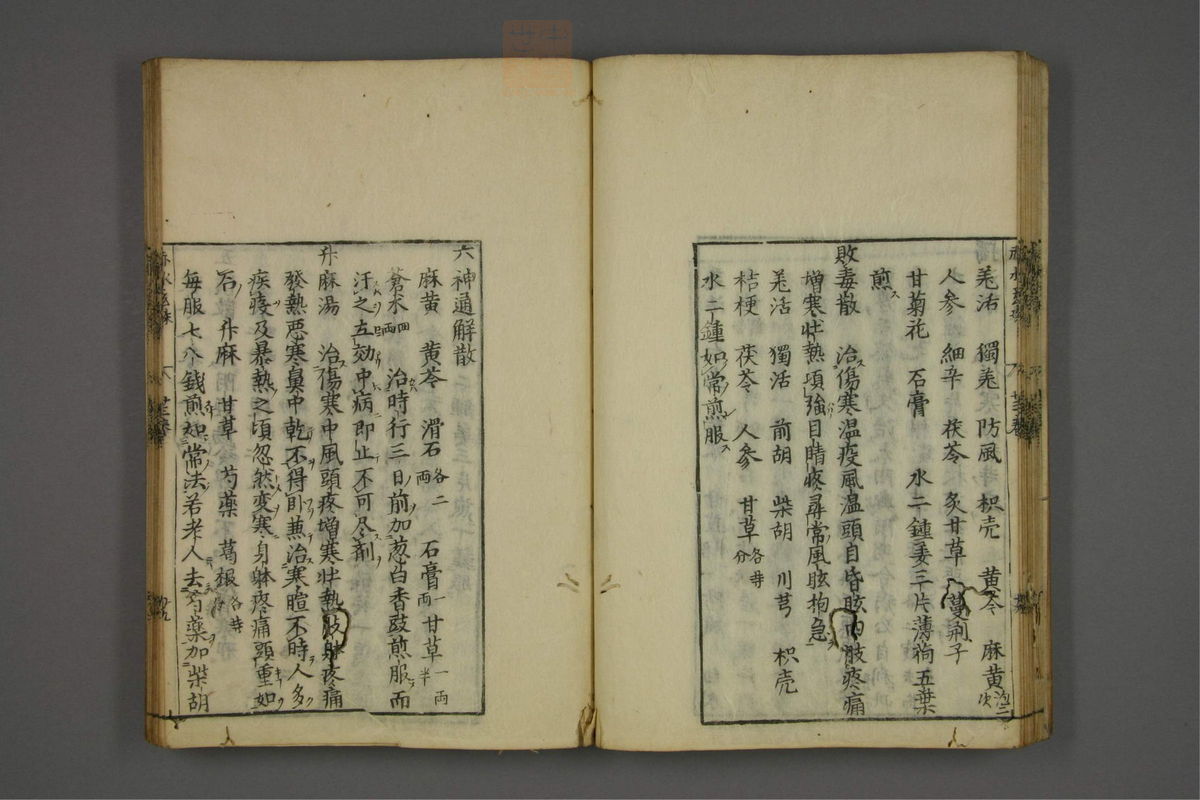 羌活　獨羌　防風　枳壳　黄芩　麻黄
人参　細辛　茯苓　炙甘草　蔓荆子
甘菊花　石膏　水二鍾姜三片薄荷五葉
煎ス
敗毒散　治傷寒温疫風温頭目昏眩四肢疼痛
増寒壮熱項強目睛疼尋常風眩拘急
羌活　獨活　前胡　柴胡　川芎　枳壳
桔梗　茯苓　人参　甘草各等分
水二鍾如常煎服ス
六神通解散
麻黄　黄芩　滑石各二両　石膏一両　甘草一両半
蒼朮四両　治時行三日前加葱白香豉煎服而
汗之立効中病即止不可尽剤
升麻湯　治傷寒中風頭疼増寒壮熱肢躰疼痛
發熱惡寒鼻中乾不得卧兼治寒暄不時人多
疾疫及暴熱之頃忽然变寒身躰疼痛頭重如
石　升麻　甘草　芍薬　葛根各等分
毎服七八銭煎如常法若老人去芍薬加柴胡